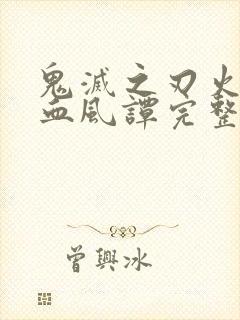 鬼滅之刃火
血風譚完整
曾興冰